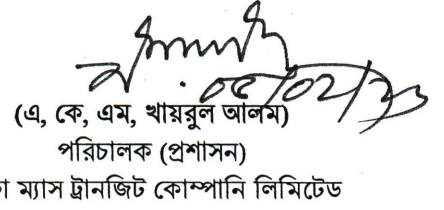 (এ, কে, এম, খায়রুল আলম)
পরিচালক (প্রশাসন)
ম্যাস ট্রানজিট কোম্পানি লিমিটেড